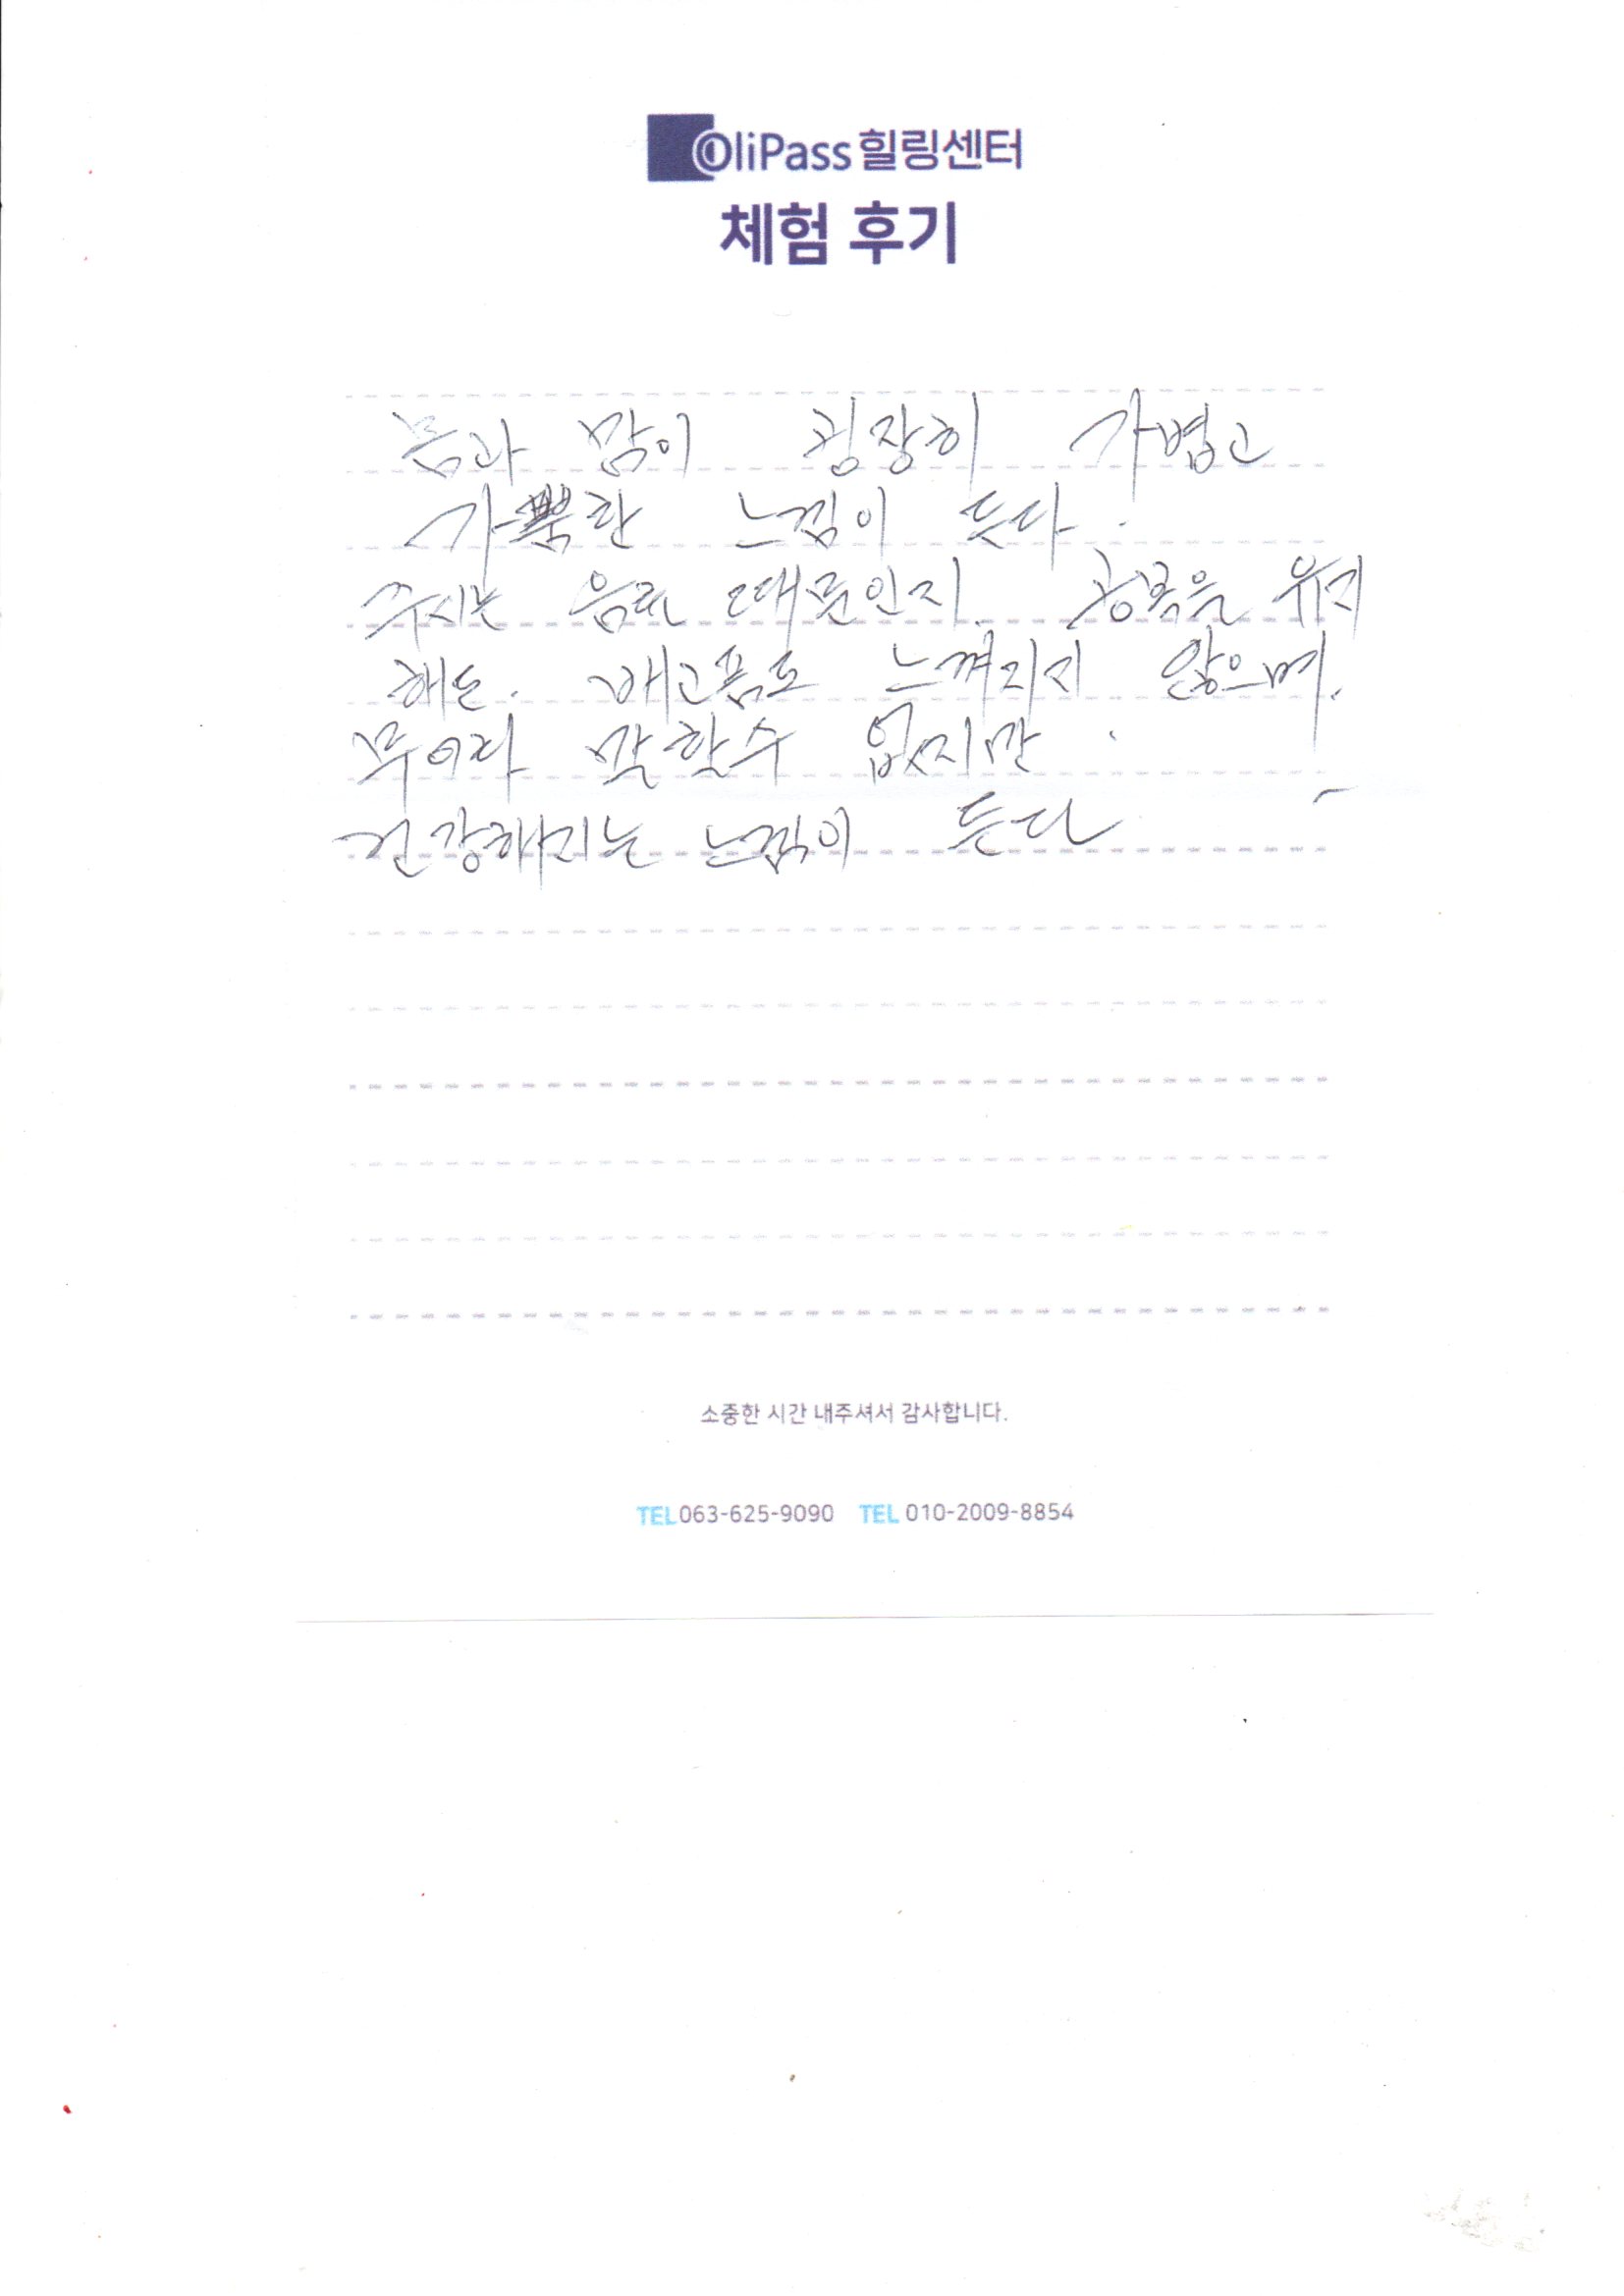 OliPass 힐링센터
체험 후기
몸과 맘이 굉장히 가볍고
가뿐한 느낌이 든다.
주시는 음료 때문인지. 공복을 유지
해도. 배고픔도 느껴지지 않으며.
무어라 말할수 없지만.
건강해지는 느낌이 든다
소중한 시간 내주셔서 감사합니다.
TEL 063-625-9090 TEL 010-2009-8854